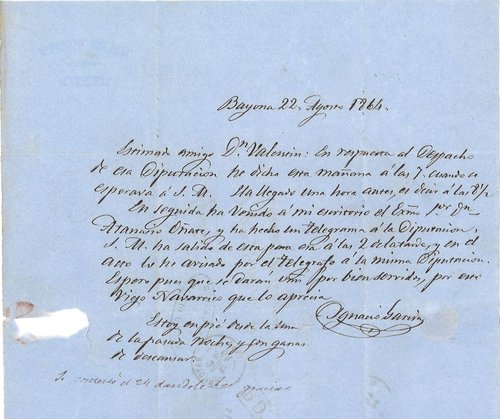 Bayona 22, Agosto 1864.
Estimado Amigo Dn. Valentin: En respuesta al Despacho
de esa Diputacion he dicho esta mañana á las 7. cuando se
esperava á S. M. Ha llegado una hora antes, es decir á las 8 1/2
En seguida ha venido á mi escritorio el Exmo. Sor. Dn.
Atanasio Oñate, y ha hecho un telegrama á la Diputacion;
S. M. ha salido de esta para esa á las 2 de la tarde, y en el
acto lo he avisado por el Telegrafo á la misma Diputacion.
Espero pues que se darán vms. por bien servidos, por este
Viejo Navarrico que lo aprecia
Ignacio Garcia
Estoy en pié desde la una
de la pasada noche, y con ganas
de descansar.
Se contestó el 24 dandole las gracias.